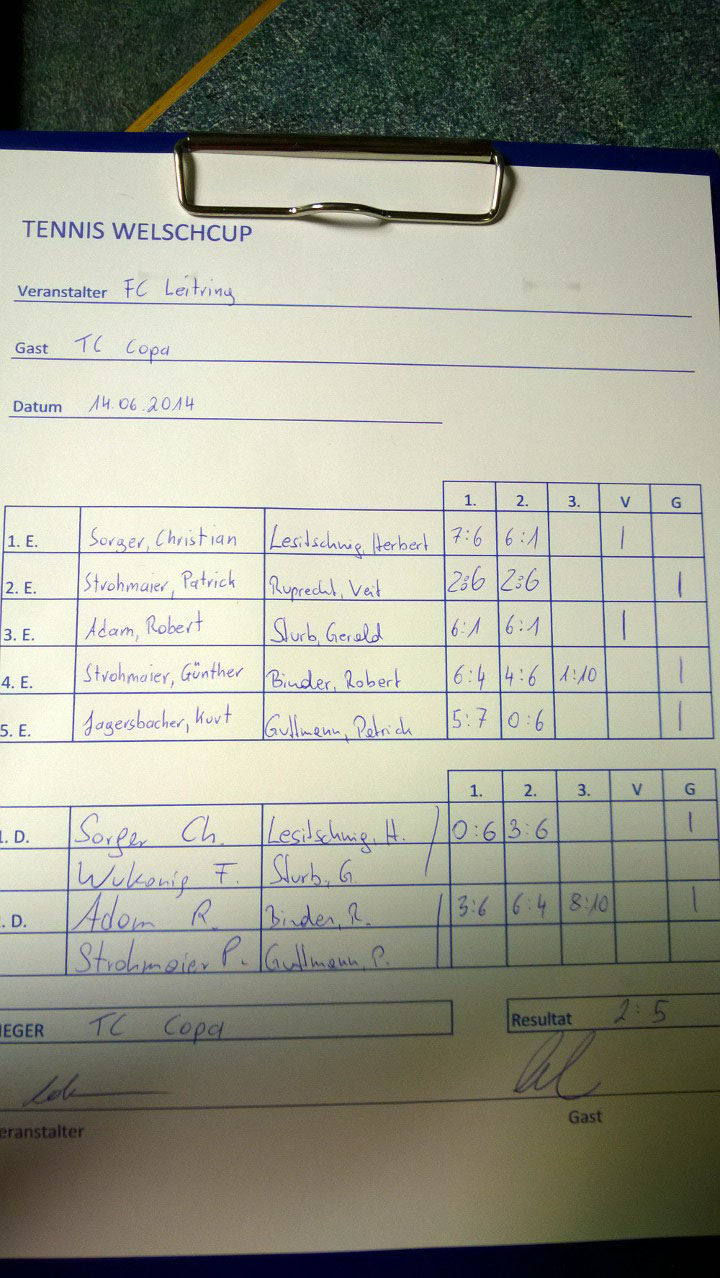 TENNIS WELSCHCUP
Veranstalter FC Leitring
Gast TC Copa
Datum 14.06.2014
1. 2. 3. V G
1. E. Sorger, Christian Lesitschnig, Herbert 7:6 6:1 |
2. E. Strohmaier, Patrick Ruprecht, Veit 2:6 2:6 |
3. E. Adam, Robert Sturb, Gerald 6:1 6:1 |
4. E. Strohmaier, Günther Binder, Robert 6:4 4:6 1:10 |
5. E. Jagersbacher, Kurt Guttmann, Patrick 5:7 0:6 |
1. 2. 3. V G
. D. Sorger Ch. Lesitschnig, H. 0:6 3:6 |
Wukonig F. Sturb, G.
. D. Adam R. Binder, R. 3:6 6:4 8:10 |
Strohmaier P. Guttmann, P.
IEGER TC Copa Resultat 2:5
eranstalter Gast